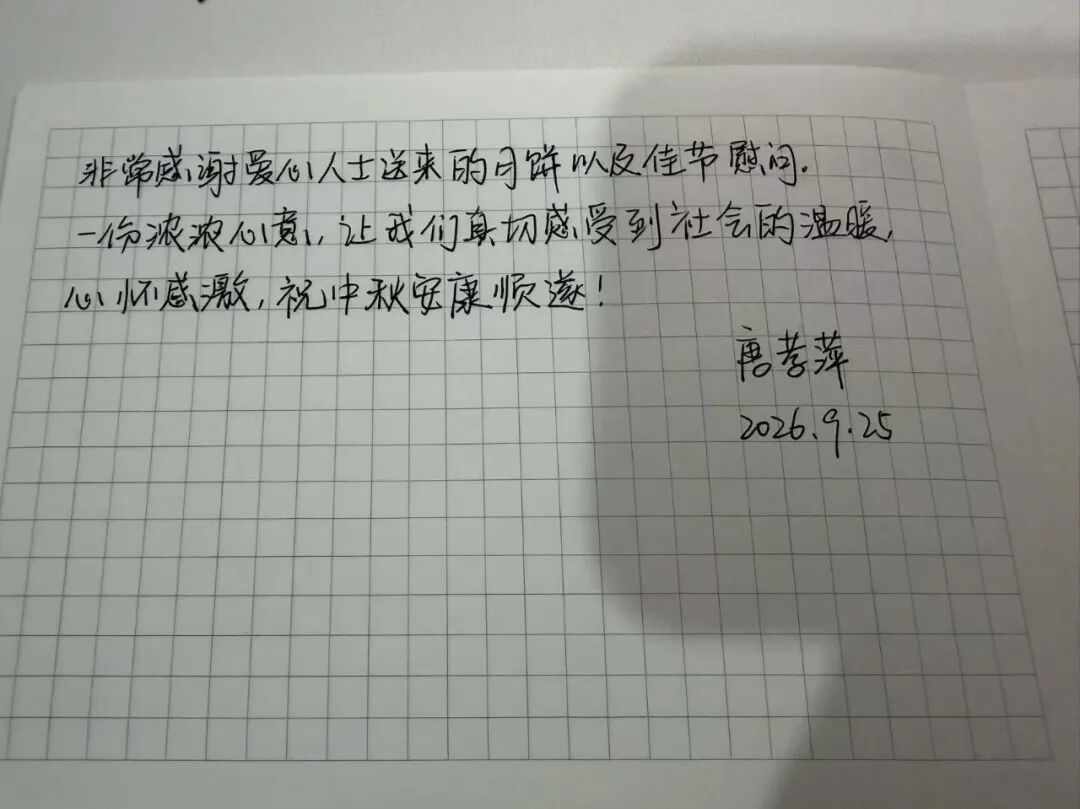 非常感谢爱心人士送来的月饼以及佳节慰问.
一份浓浓心意,让我们真切感受到社会的温暖,
心怀感激,祝中秋安康顺遂!
唐孝萍
2026.9.25